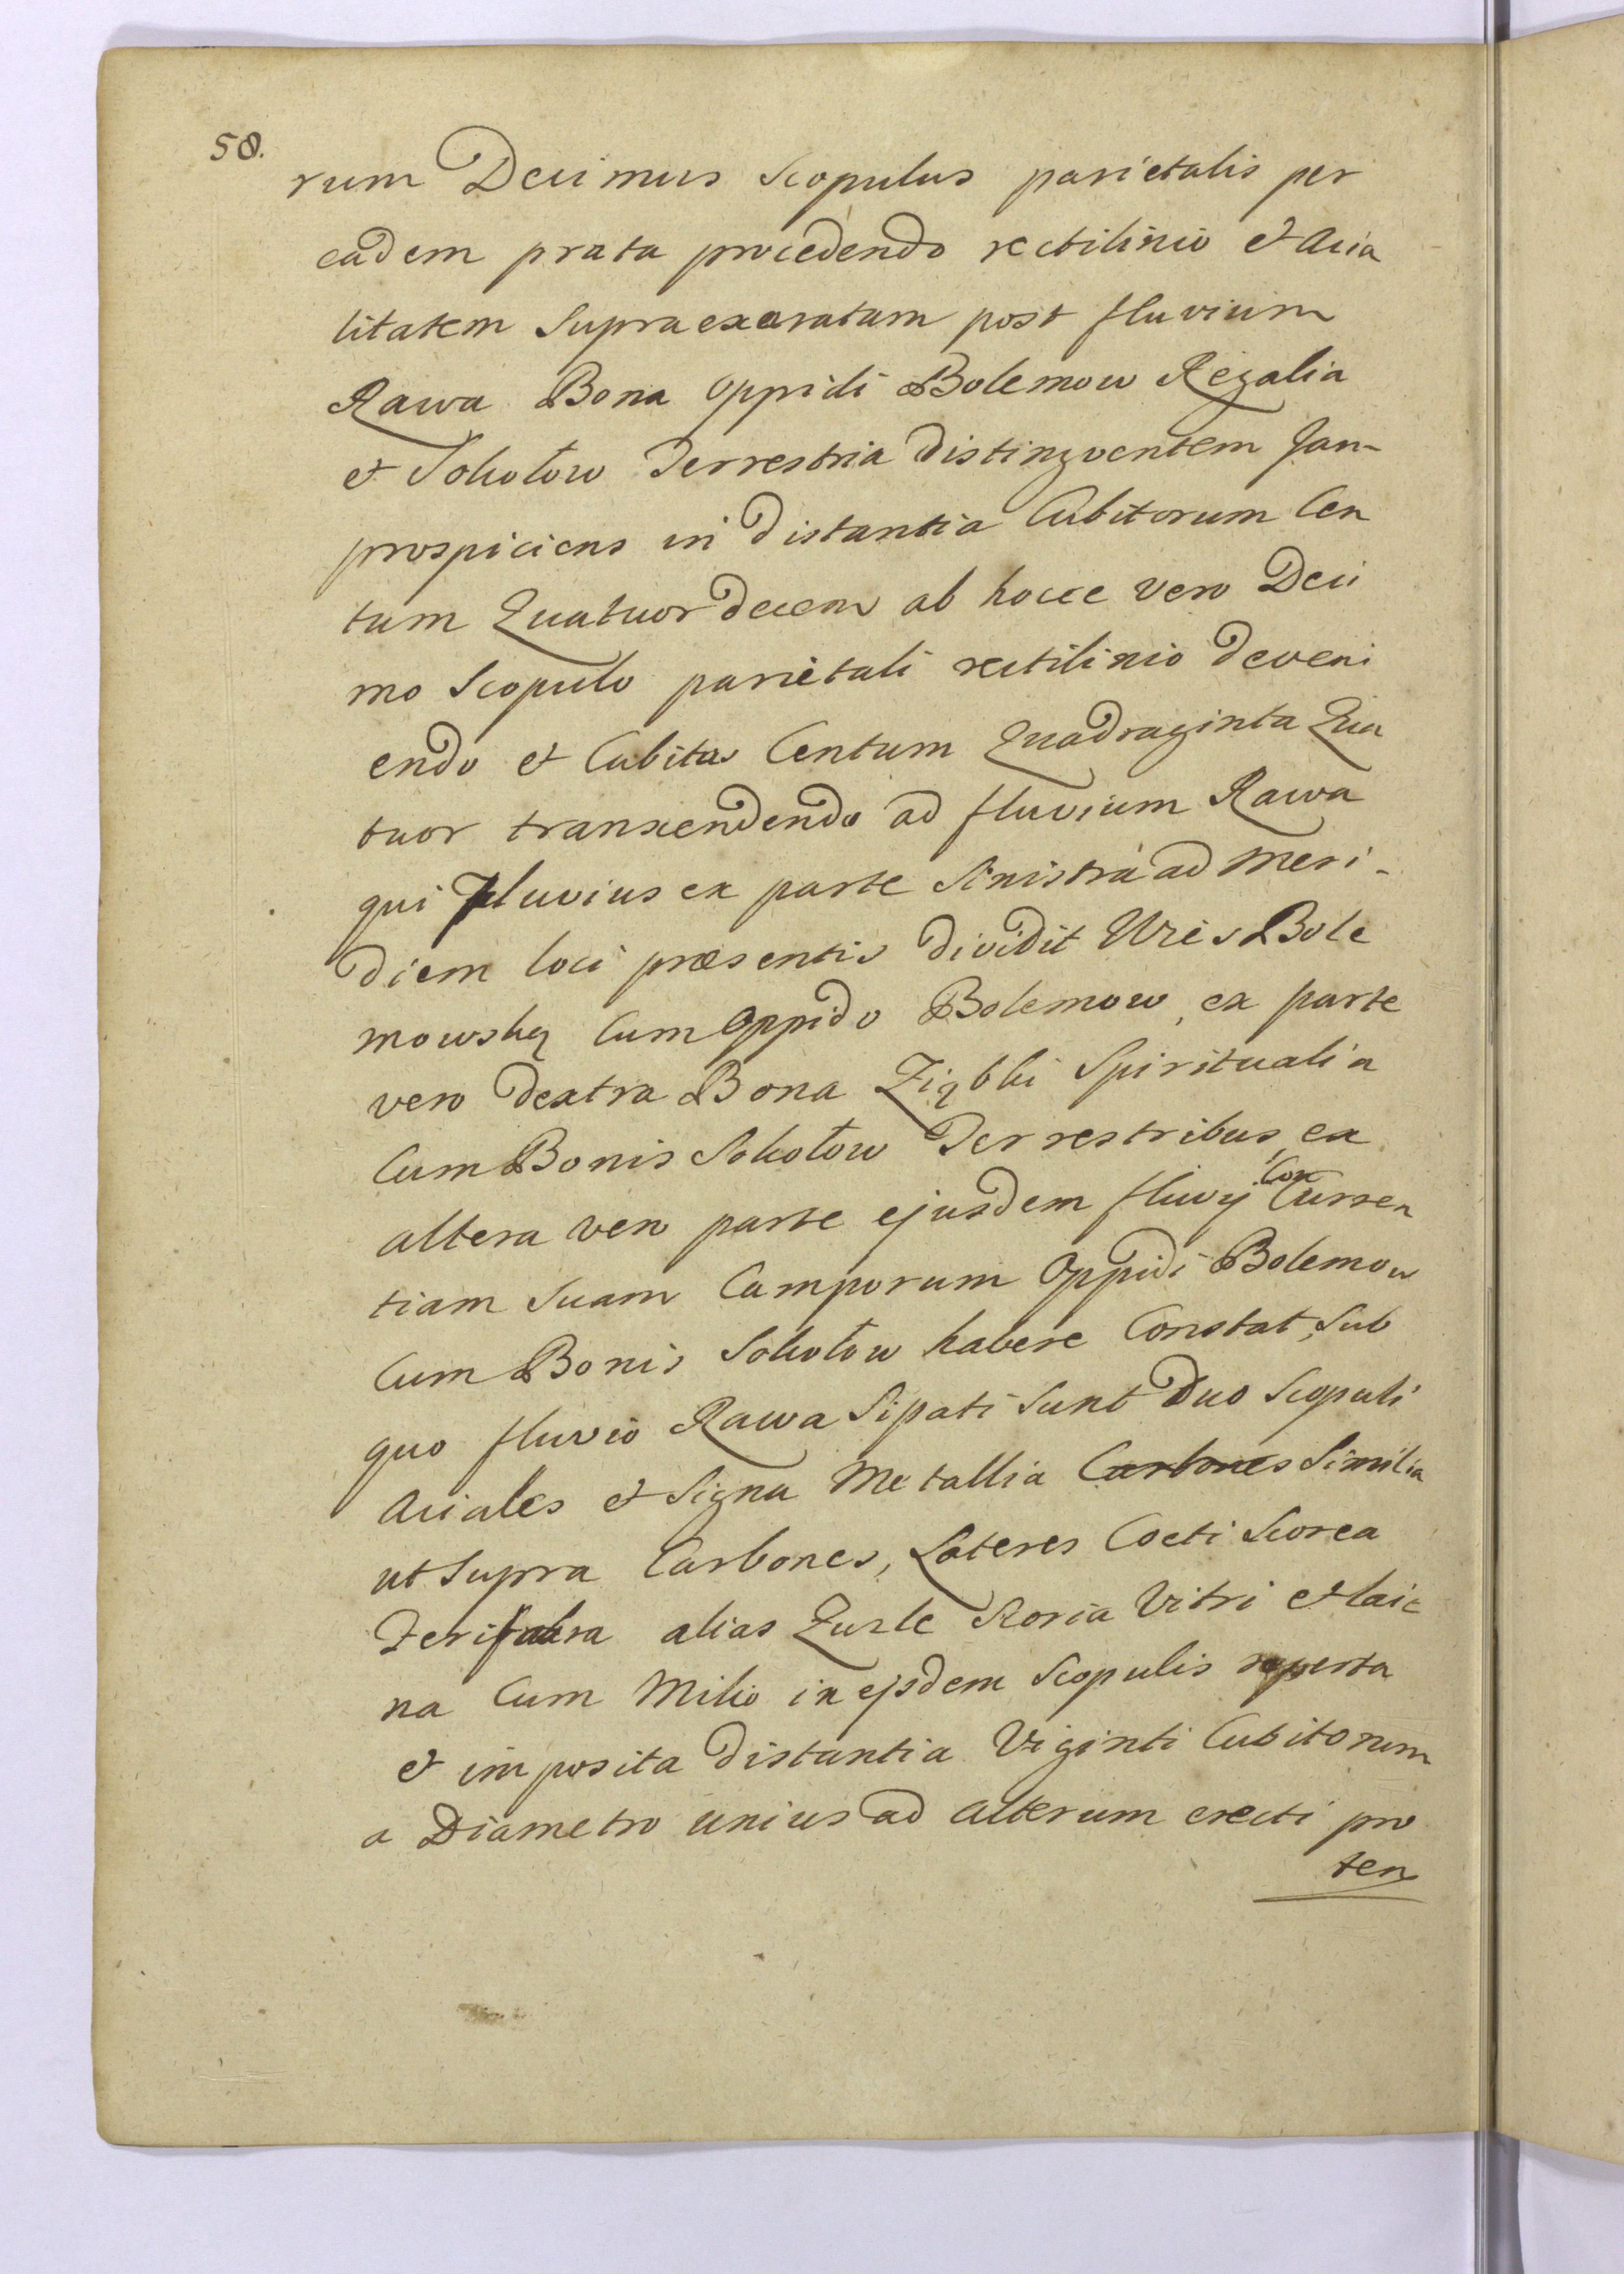 58.
rum Decimus Scopulus parietalis per
eadem prata procedendo rectilinio et Acia
litatem Supraexaratam post fluvium
Rawa Bona Oppidi Bolemow Regalia
et Sokołow Terrestria distingventem Jan-
prospiciens in distantia Cubitorum Cen
tum Quatuordecem ab hocce vero Deci
mo Scopulo parietali rectilinio deveni
endo et Cubitas Centum Quadraginta Qua
tuor transcendendo ad fluvium Rawa
qui Fluvius ex parte Sinistra ad Meri-
diem loci praesentis dividit Wies Bole
mowską Cum Oppido Bolemow, ex parte
vero dextra Bona Ziąbki Spiritualia
Cum Bonis Sokołow Terrestribus, ex
altera vero parte ejusdem fluvij Con Curren
tiam Suam Camporum Oppidi Bolemow
Cum Bonis Sokołow habere Constat, Sub
quo fluvio Rawa Sipati Sunt Duo Scopuli
Aciales et Signa Metallia Carbones Similia
ut Supra Carbones, Lateres Cocti Scorea
alias Zuzle Scoria Vitri et laic
na Cum Milio in ejsdem Scopulis reperta
et imposita distantia Viginti Cubitorum
a Diametro unius ad alterum erecti pro
ten